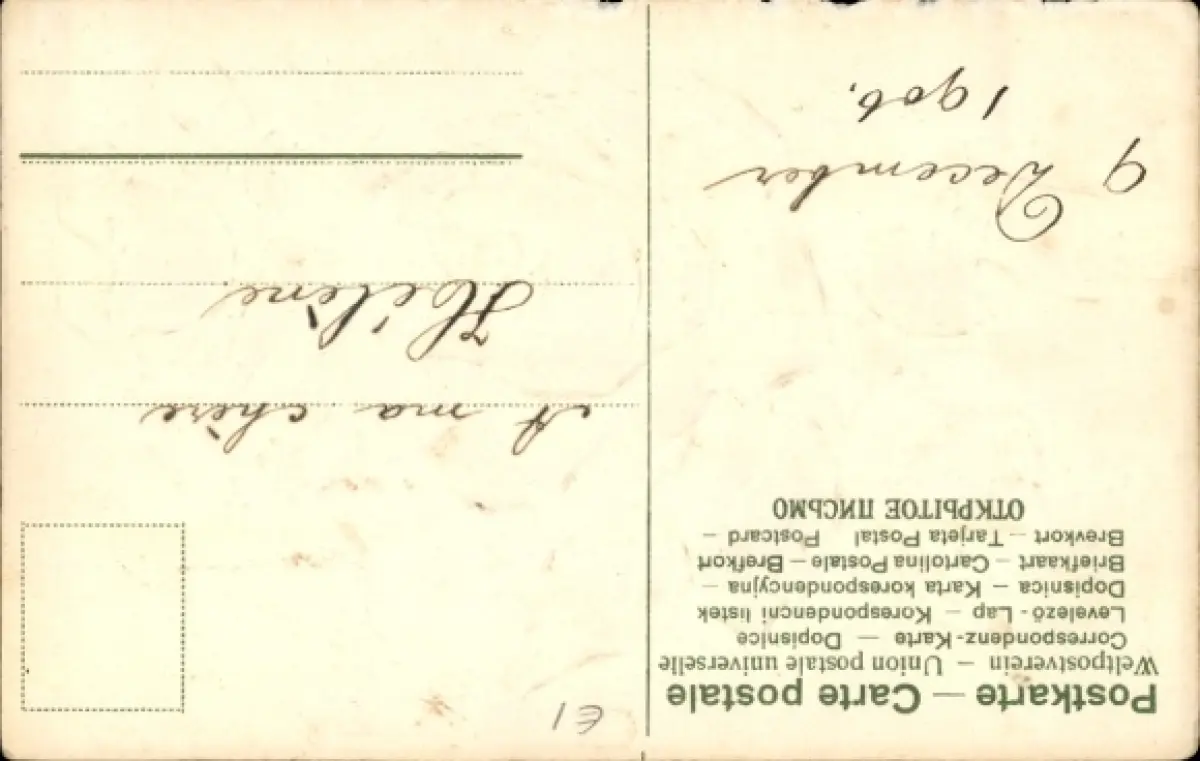 Postkarte — Carte postale
Weltpostverein — Union postale universelle
Correspondenz-Karte — Dopisnice
Levelező-Lap — Korespondenční lístek
Dopisnica — Karta korespondencyjna —
Briefkaart — Cartolina Postale — Brefkort
Brevkort — Tarjeta Postal Postcard —
ОТКРЫТОЕ ПИСЬМО
9 December
1906.
E1
A ma chère
Hélène